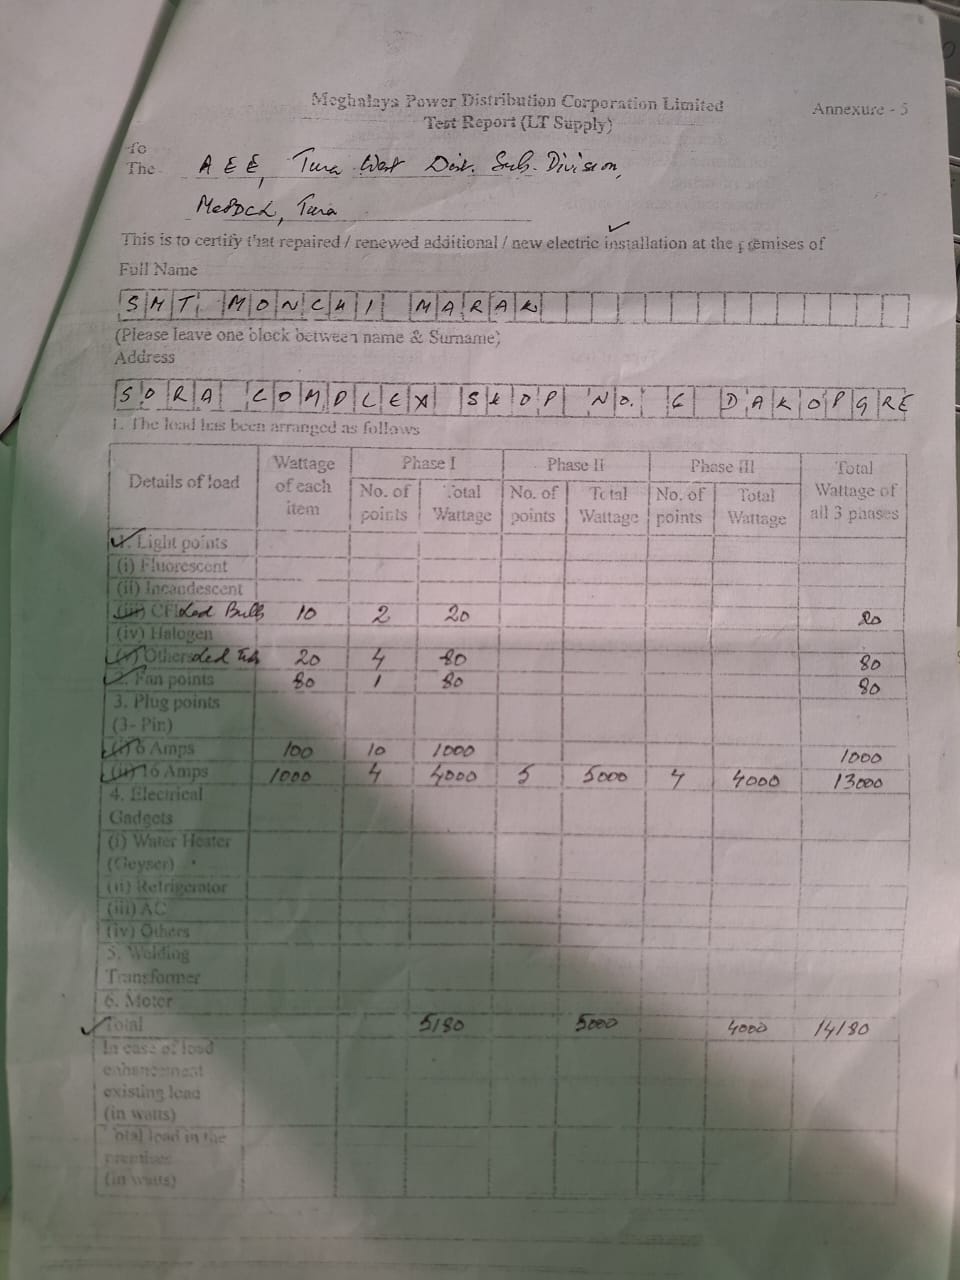 Meghalaya Power Distribution Corporation Limited
Annexure - 5
Test Report (LT Supply)
To
The A E E, Tura West Dist. Sub. Division,
MePDCL, Tura
This is to certify that repaired / renewed additional / new electric installation at the premises of
Full Name
SMT MONCHI MARAK
(Please leave one block between name & Surname)
Address
SORA COMPLEX SHOP NO. 6 DAKOPGRE
1. The load has been arranged as follows
Details of load Wattage of each item Phase I Phase II Phase III Total Wattage of all 3 phases
No. of points Total Wattage No. of points Total Wattage No. of points Total Wattage
1. Light points
(i) Fluorescent
(ii) Incandescent
(iii) CFL Led Bulb 10 2 20 20
(iv) Halogen
(v) Others Led 20 4 80 80
2. Fan points 80 1 80 80
3. Plug points
(3- Pin)
(i) 6 Amps 100 10 1000 1000
(ii) 16 Amps 1000 4 4000 5 5000 4 4000 13000
4. Electrical
Gadgets
(i) Water Heater
(Geyser)
(ii) Refrigerator
(iii) AC
(iv) Others
5. Welding
Transformer
6. Motor
Total 5180 5000 4000 14180
In case of load
enhancement
existing load
(in watts)
Total load in the
premises
(in watts)